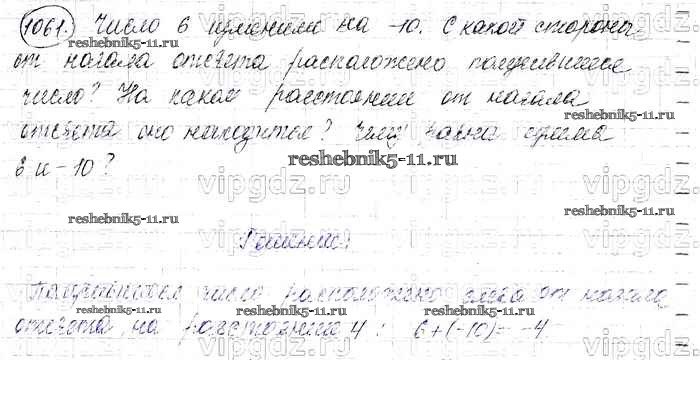 1061. Число 6 изменили на -10. С какой стороны
от начала отсчета расположено получившееся
число? На каком расстоянии от начала
отсчета оно находится? Чему равна сумма
6 и -10?
Решение:
Получившееся число расположено слева от начала
отсчета, на расстоянии 4: 6+(-10)=-4.
reshebnik5-11.ru
reshebnik5-11.ru
reshebnik5-11.ru
reshebnik5-11.ru
reshebnik5-11.ru
reshebnik5-11.ru
reshebnik5-11.ru
vipgdz.ru
vipgdz.ru
vipgdz.ru
vipgdz.ru
vipgdz.ru
vipgdz.ru